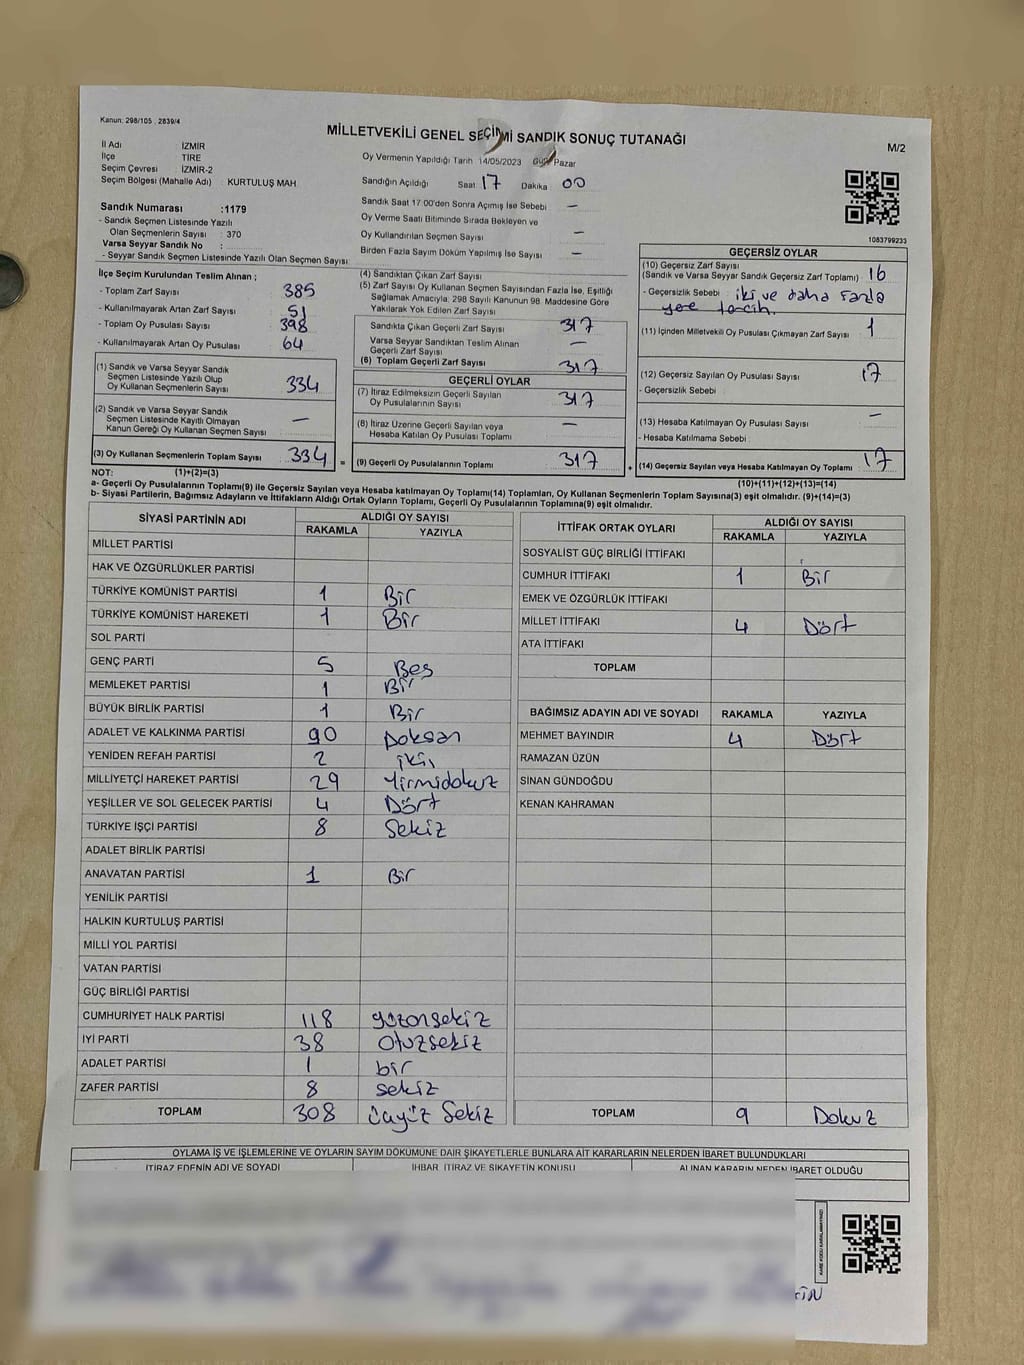 Kanun: 298/105 , 2839/4
MİLLETVEKİLİ GENEL SEÇİMİ SANDIK SONUÇ TUTANAĞI
M/2
İl Adı İZMİR
İlçe TİRE
Seçim Çevresi : İZMİR-2
Seçim Bölgesi (Mahalle Adı) KURTULUŞ MAH
Oy Vermenin Yapıldığı Tarih 14/05/2023 Gün Pazar
Sandığın Açıldığı Saat 17 Dakika 00
Sandık Saat 17 00'den Sonra Açımış İse Sebebi —
Oy Verme Saati Bitiminde Sırada Bekleyen ve
Oy Kullandırılan Seçmen Sayısı —
Birden Fazla Sayım Döküm Yapılmış İse Sayısı —
1083799233
Sandık Numarası :1179
- Sandık Seçmen Listesinde Yazılı
Olan Seçmenlerin Sayısı : 370
Varsa Seyyar Sandık No :
- Seyyar Sandık Seçmen Listesinde Yazılı Olan Seçmen Sayısı:
İlçe Seçim Kurulundan Teslim Alınan ;
- Toplam Zarf Sayısı 385
- Kullanılmayarak Artan Zarf Sayısı 51
- Toplam Oy Pusulası Sayısı 398
- Kullanılmayarak Artan Oy Pusulası 64
(1) Sandık ve Varsa Seyyar Sandık
Seçmen Listesinde Yazılı Olup
Oy Kullanan Seçmenlerin Sayısı 334
(2) Sandık ve Varsa Seyyar Sandık
Seçmen Listesinde Kayıtlı Olmayan
Kanun Gereği Oy Kullanan Seçmen Sayısı —
(3) Oy Kullanan Seçmenlerin Toplam Sayısı 334
(4) Sandıktan Çıkan Zarf Sayısı
(5) Zarf Sayısı Oy Kullanan Seçmen Sayısından Fazla İse, Eşitliği
Sağlamak Amacıyla; 298 Sayılı Kanunun 98. Maddesine Göre
Yakılarak Yok Edilen Zarf Sayısı
Sandıkta Çıkan Geçerli Zarf Sayısı 317
Varsa Seyyar Sandıktan Teslim Alınan
Geçerli Zarf Sayısı —
(6) Toplam Geçerli Zarf Sayısı 317
GEÇERLİ OYLAR
(7) İtiraz Edilmeksizin Geçerli Sayılan
Oy Pusulalarının Sayısı 317
(8) İtiraz Üzerine Geçerli Sayılan veya
Hesaba Katılan Oy Pusulası Toplamı —
= (9) Geçerli Oy Pusulalarının Toplamı 317
GEÇERSİZ OYLAR
(10) Geçersiz Zarf Sayısı
(Sandık ve Varsa Seyyar Sandık Geçersiz Zarf Toplamı) 16
- Geçersizlik Sebebi : iki ve daha fazla
yere tercih.
(11) İçinden Milletvekili Oy Pusulası Çıkmayan Zarf Sayısı 1
(12) Geçersiz Sayılan Oy Pusulası Sayısı 17
- Geçersizlik Sebebi :
(13) Hesaba Katılmayan Oy Pusulası Sayısı —
- Hesaba Katılmama Sebebi
+ (14) Geçersiz Sayılan veya Hesaba Katılmayan Oy Toplamı 17
NOT: (1)+(2)=(3)
(10)+(11)+(12)+(13)=(14)
a- Geçerli Oy Pusulalarının Toplamı(9) ile Geçersiz Sayılan veya Hesaba katılmayan Oy Toplamı(14) Toplamları, Oy Kullanan Seçmenlerin Toplam Sayısına(3) eşit olmalıdır. (9)+(14)=(3)
b- Siyasi Partilerin, Bağımsız Adayların ve İttifakların Aldığı Ortak Oyların Toplamı, Geçerli Oy Pusulalarının Toplamına(9) eşit olmalıdır.
SİYASİ PARTİNİN ADI ALDIĞI OY SAYISI
RAKAMLA YAZIYLA
MİLLET PARTİSİ
HAK VE ÖZGÜRLÜKLER PARTİSİ
TÜRKİYE KOMÜNİST PARTİSİ 1 Bir
TÜRKİYE KOMÜNİST HAREKETİ 1 Bir
SOL PARTİ
GENÇ PARTİ 5 Beş
MEMLEKET PARTİSİ 1 Bir
BÜYÜK BİRLİK PARTİSİ 1 Bir
ADALET VE KALKINMA PARTİSİ 90 Doksan
YENİDEN REFAH PARTİSİ 2 iki
MİLLİYETÇİ HAREKET PARTİSİ 29 Yirmidokuz
YEŞİLLER VE SOL GELECEK PARTİSİ 4 Dört
TÜRKİYE İŞÇİ PARTİSİ 8 Sekiz
ADALET BİRLİK PARTİSİ
ANAVATAN PARTİSİ 1 Bir
YENİLİK PARTİSİ
HALKIN KURTULUŞ PARTİSİ
MİLLİ YOL PARTİSİ
VATAN PARTİSİ
GÜÇ BİRLİĞİ PARTİSİ
CUMHURİYET HALK PARTİSİ 118 yüzonsekiz
İYİ PARTİ 38 otuzsekiz
ADALET PARTİSİ 1 bir
ZAFER PARTİSİ 8 sekiz
TOPLAM 308 üçyüz Sekiz
İTTİFAK ORTAK OYLARI ALDIĞI OY SAYISI
RAKAMLA YAZIYLA
SOSYALİST GÜÇ BİRLİĞİ İTTİFAKI
CUMHUR İTTİFAKI 1 Bir
EMEK VE ÖZGÜRLÜK İTTİFAKI
MİLLET İTTİFAKI 4 Dört
ATA İTTİFAKI
TOPLAM
BAĞIMSIZ ADAYIN ADI VE SOYADI RAKAMLA YAZIYLA
MEHMET BAYINDIR 4 Dört
RAMAZAN ÜZÜN
SİNAN GÜNDOĞDU
KENAN KAHRAMAN
TOPLAM 9 Dokuz
OYLAMA İŞ VE İŞLEMLERİNE VE OYLARIN SAYIM DÖKÜMÜNE DAİR ŞİKAYETLERLE BUNLARA AİT KARARLARIN NELERDEN İBARET BULUNDUKLARI
İTİRAZ EDENİN ADI VE SOYADI İHBAR, İTİRAZ VE ŞİKAYETİN KONUSU ALINAN KARARIN NEDEN İBARET OLDUĞU
KARE KODU KARALAMAYINIZ!